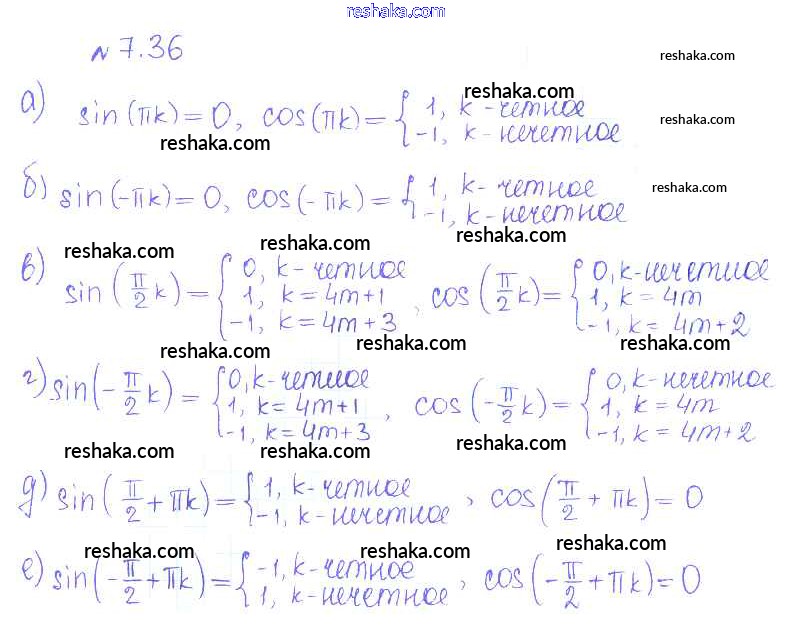 reshaka.com
№ 7.36
reshaka.com
reshaka.com
а) sin(πk) = 0, cos(πk) = { 1, k - четное
-1, k - нечетное
reshaka.com
reshaka.com
б) sin(-πk) = 0, cos(-πk) = { 1, k - четное
-1, k - нечетное
reshaka.com
reshaka.com reshaka.com reshaka.com
в) sin(π/2 k) = { 0, k - четное
1, k = 4m+1
-1, k = 4m+3
, cos(π/2 k) = { 0, k - нечетное
1, k = 4m
-1, k = 4m+2
reshaka.com reshaka.com reshaka.com
г) sin(-π/2 k) = { 0, k - четное
1, k = 4m+1
-1, k = 4m+3
, cos(-π/2 k) = { 0, k - нечетное
1, k = 4m
-1, k = 4m+2
reshaka.com reshaka.com reshaka.com
д) sin(π/2 + πk) = { 1, k - четное
-1, k - нечетное
, cos(π/2 + πk) = 0
reshaka.com reshaka.com reshaka.com
е) sin(-π/2 + πk) = { -1, k - четное
1, k - нечетное
, cos(-π/2 + πk) = 0